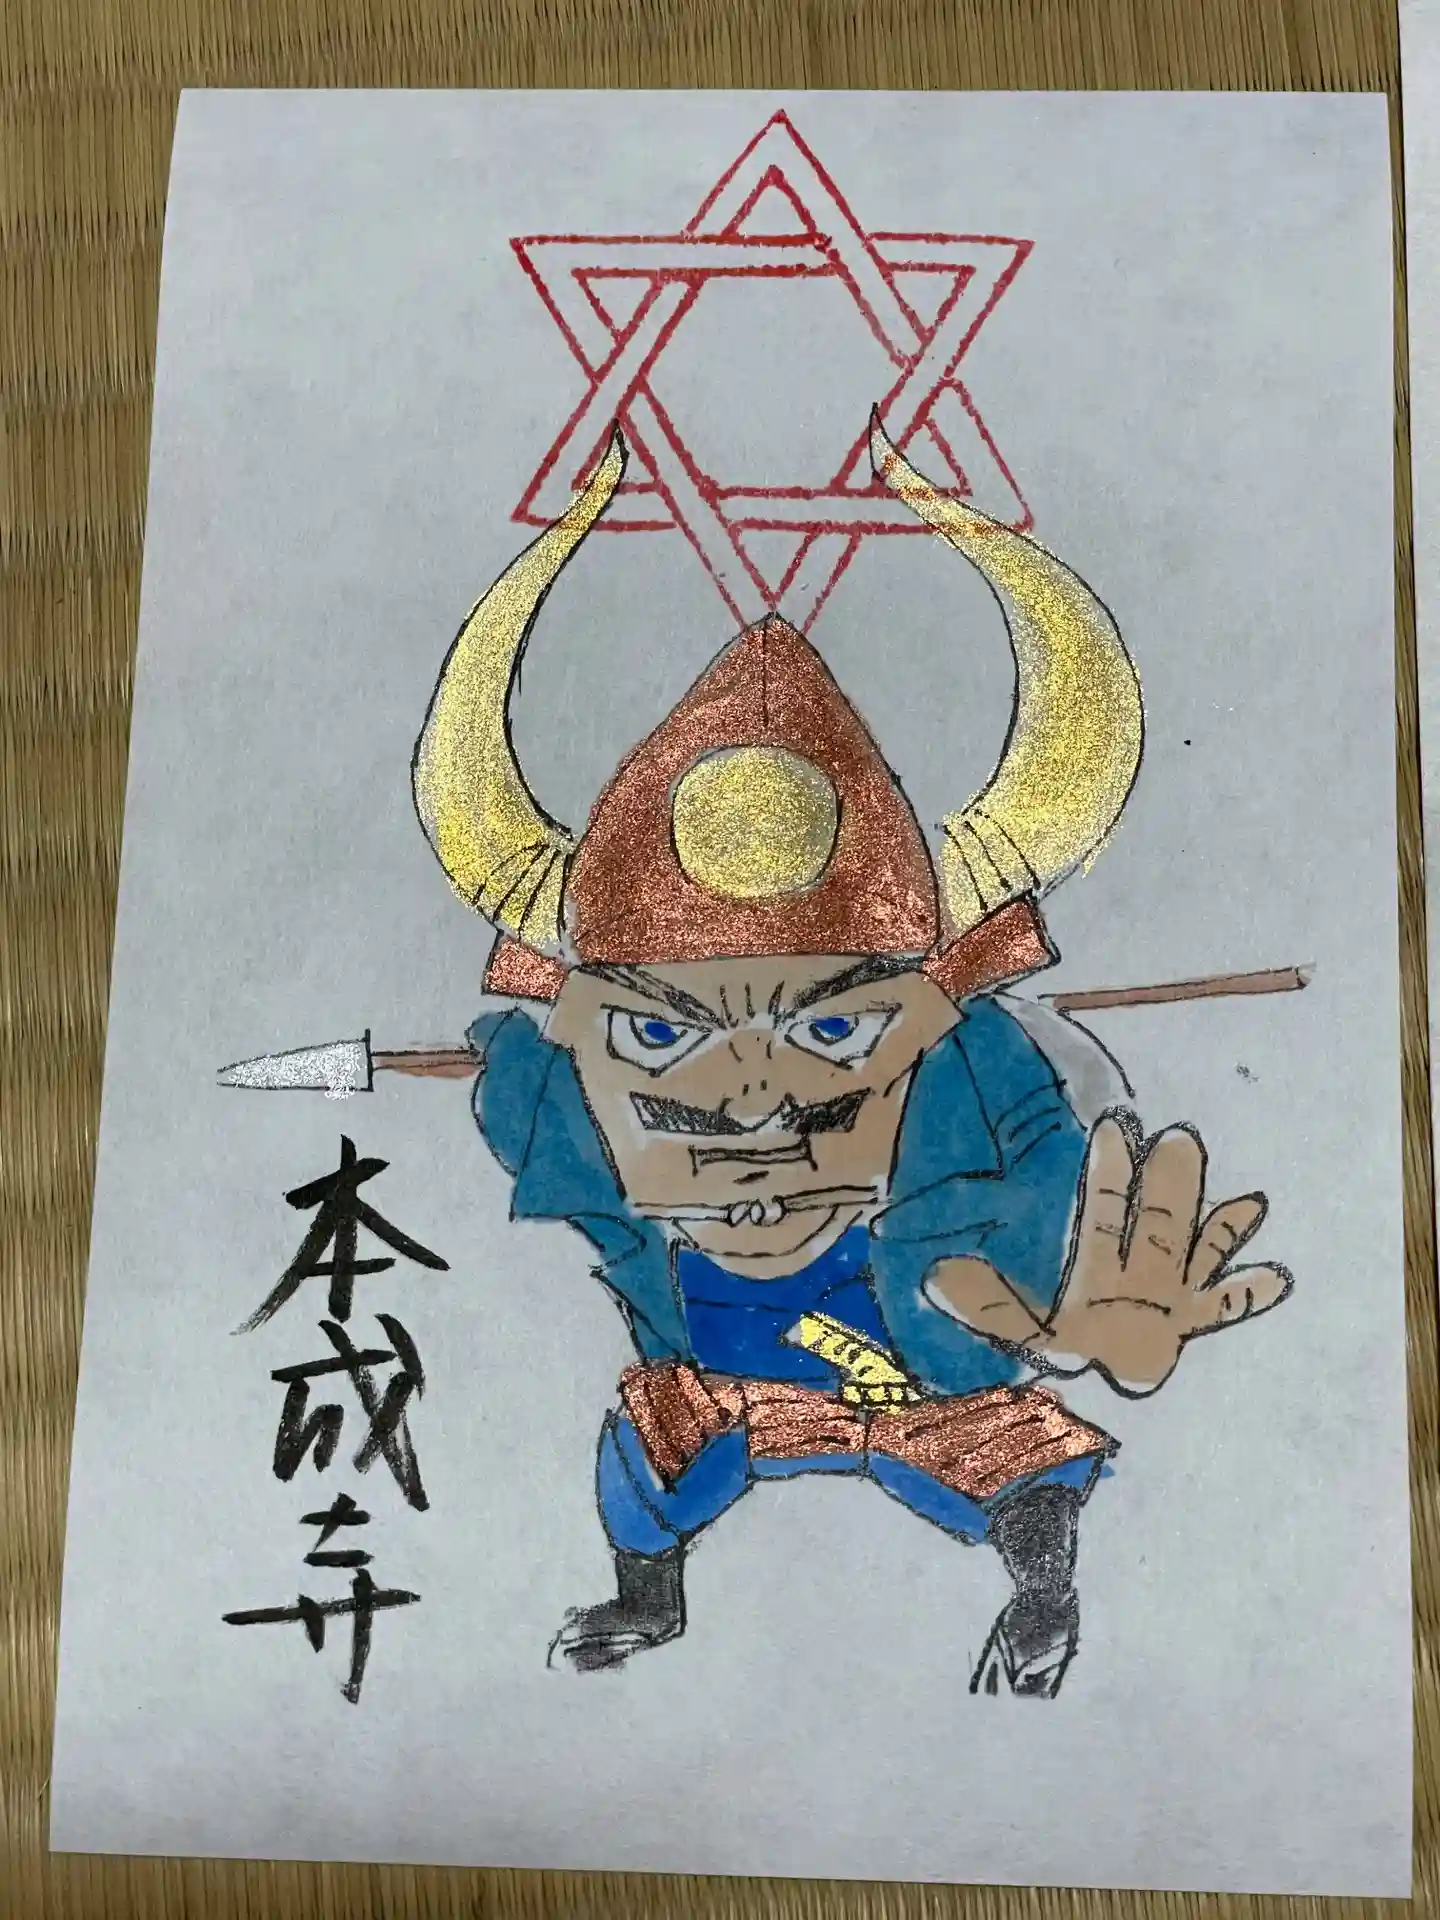 本成寺